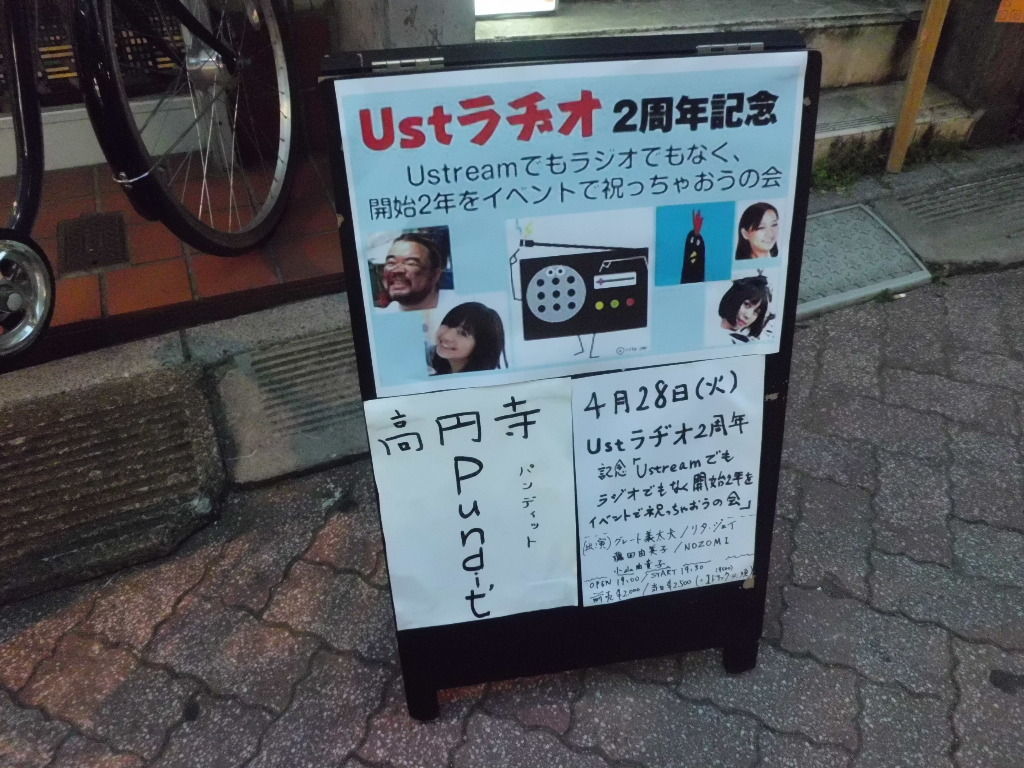 Ustラヂオ 2周年記念
Ustreamでもラジオでもなく、
開始2年をイベントで祝っちゃおうの会
高円寺
Pundit'
パンディット
4月28日(火)
Ustラヂオ2周年
記念「Ustreamでも
ラジオでもなく開始2年を
イベントで祝っちゃおうの会」
(出演)グレート義太夫/リタ・ジェイ
由美子/NOZOMI
小山由貴子
OPEN 19:00/START 19:30
前売¥2,000/当日¥2,500